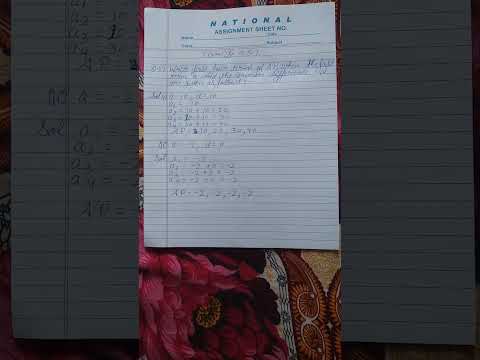 NATIONAL
ASSIGNMENT SHEET NO.
Name
Date
Class
Subject
Write first four terms of AP, when the first
term a and the common difference d
are given as follows:
Sol a = 10, d = 10
a₁ = 10
a₂ = 10 + 10 = 20
a₃ = 20 + 10 = 30
a₄ = 30 + 10 = 40
AP = 10, 20, 30, 40
a = -2, d = 0
Sol a₁ = -2
a₂ = -2 + 0 = -2
a₃ = -2 + 0 = -2
a₄ = -2 + 0 = -2
AP = -2, -2, -2, -2